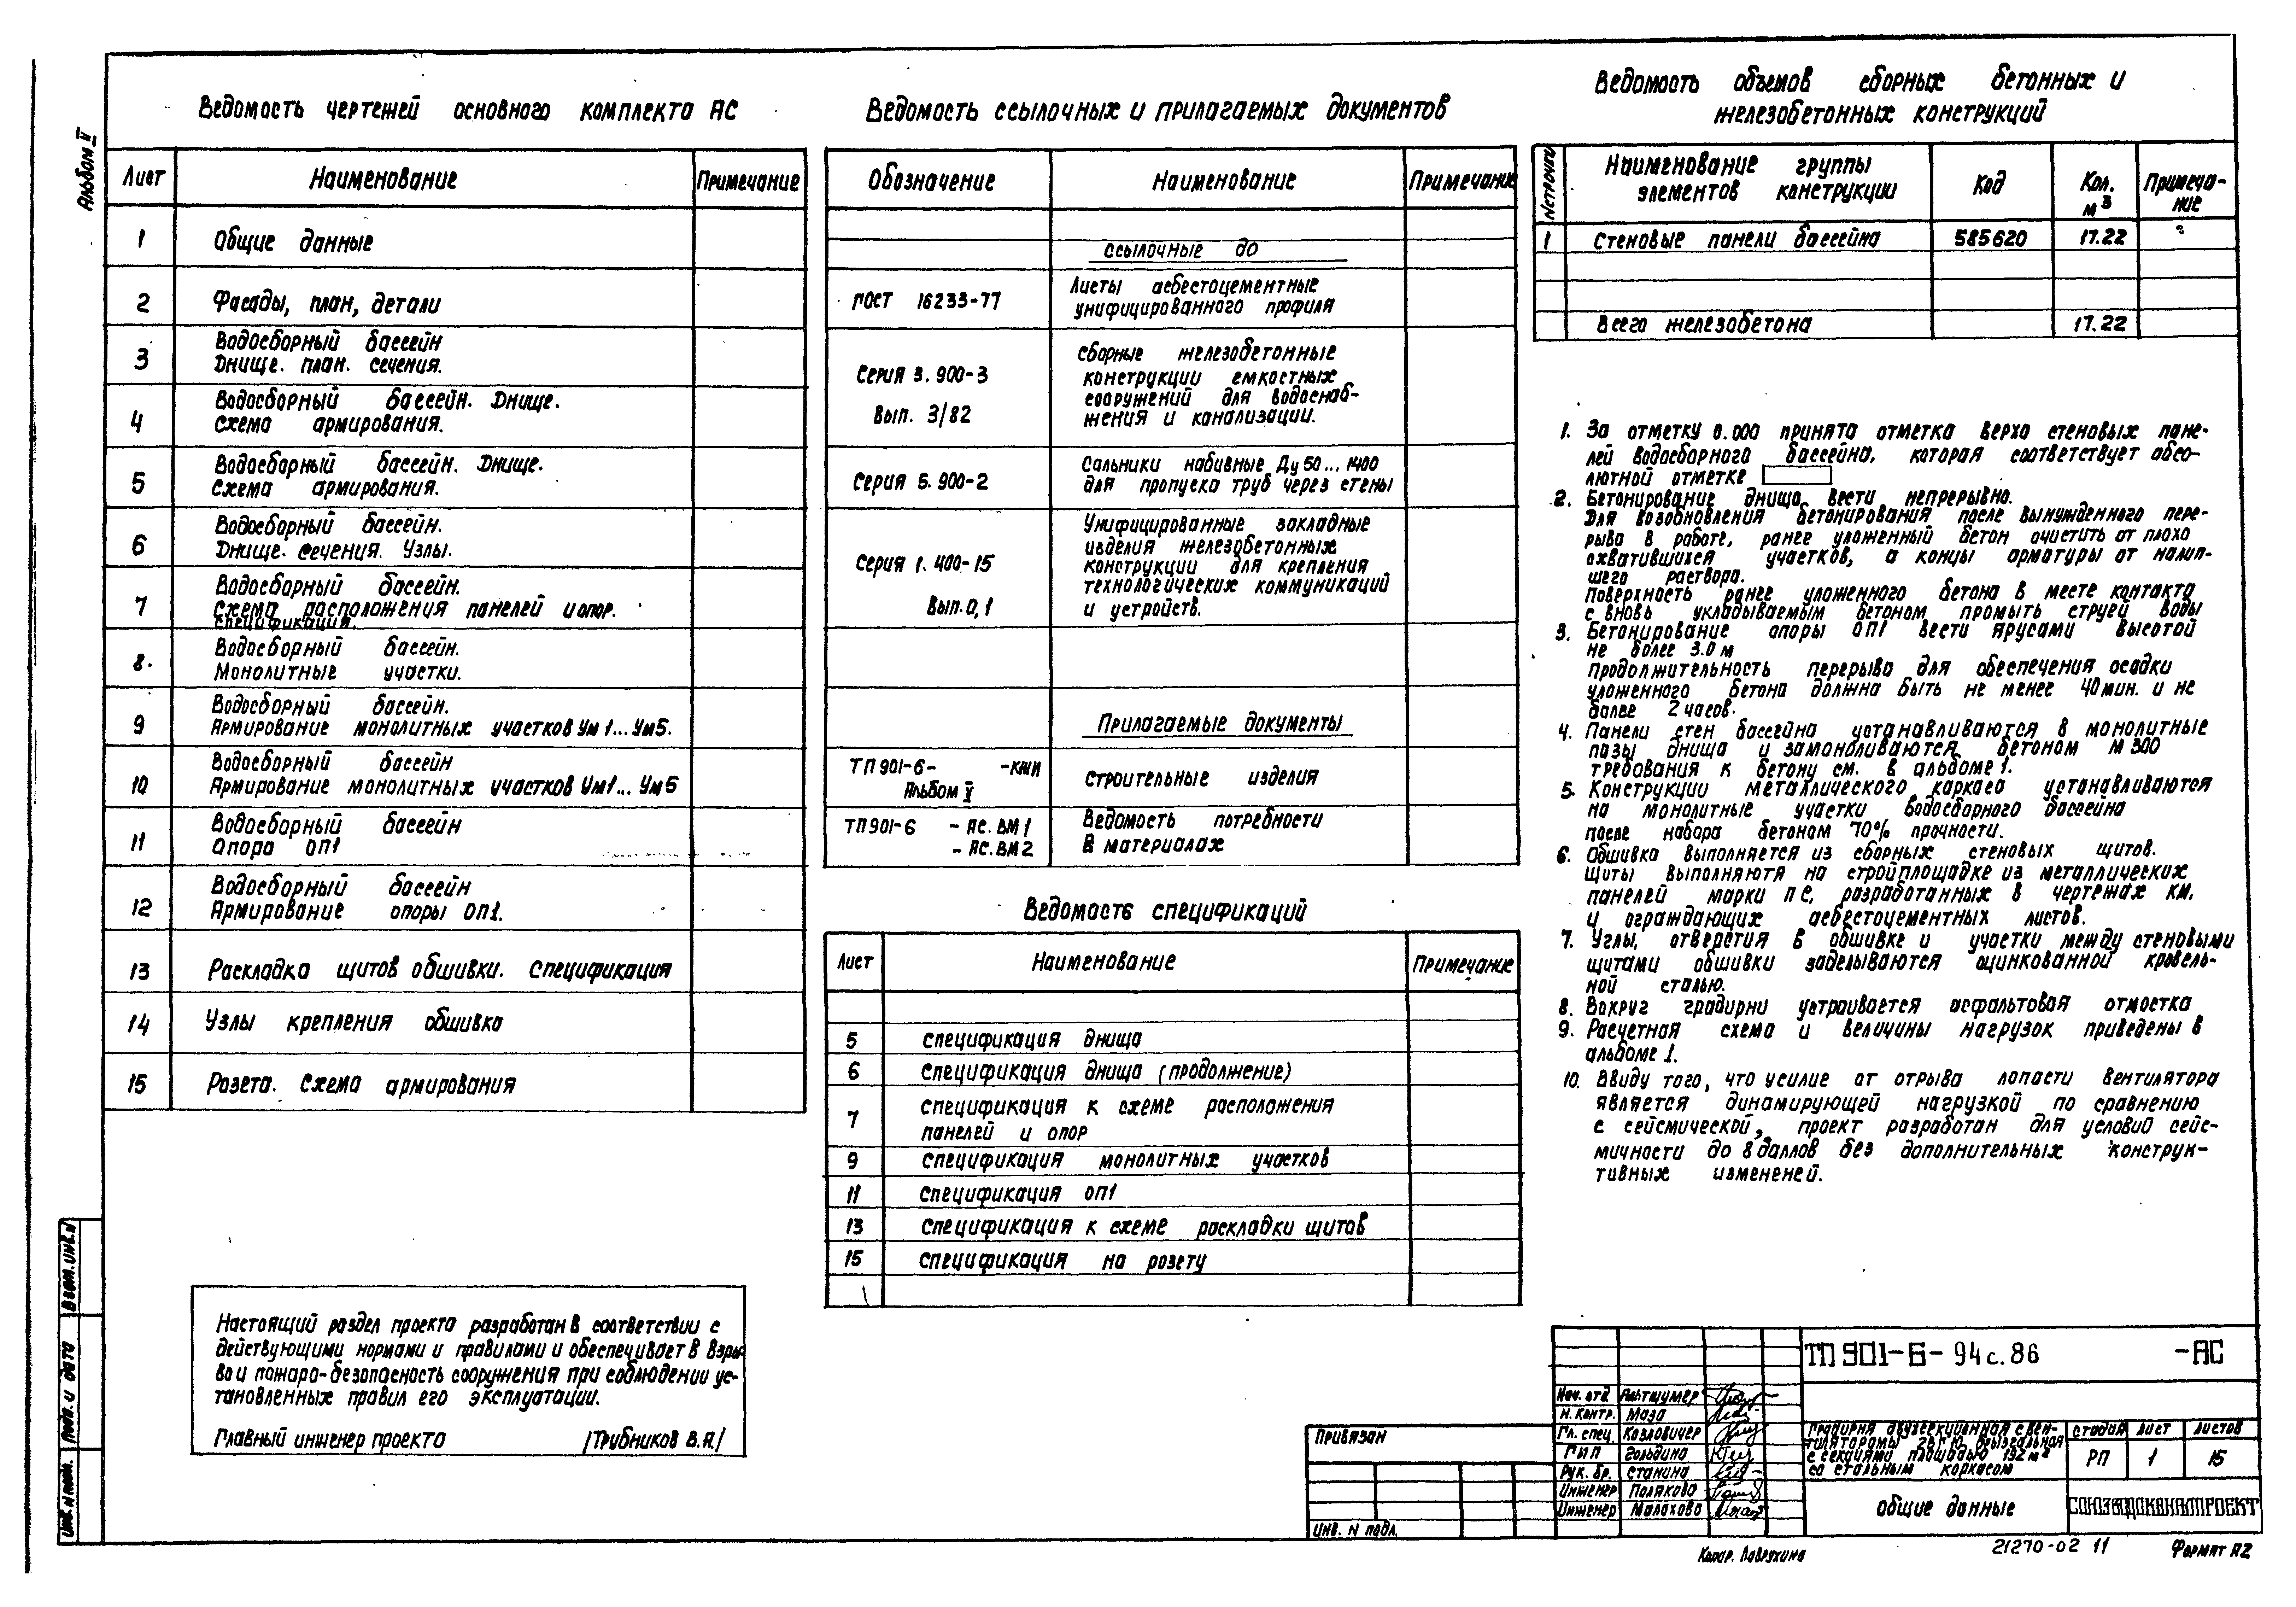 Альбом V
Ведомость чертежей основного комплекта АС
Лист Наименование Примечание
1 Общие данные
2 Фасады, план, детали
3 Водосборный бассейн
Днище. план. сечения.
4 Водосборный бассейн. Днище.
Схема армирования.
5 Водосборный бассейн. Днище.
Схема армирования.
6 Водосборный бассейн.
Днище. Сечения. Узлы.
7 Водосборный бассейн.
Схема расположения панелей и опор.
Спецификация.
8. Водосборный бассейн.
Монолитные участки.
9 Водосборный бассейн.
Армирование монолитных участков Ум1...Ум5.
10 Водосборный бассейн
Армирование монолитных участков Ум1...Ум5
11 Водосборный бассейн
Опора ОП1
12 Водосборный бассейн
Армирование опоры ОП1.
13 Раскладка щитов обшивки. Спецификация
14 Узлы крепления обшивка
15 Розета. Схема армирования
Настоящий раздел проекта разработан в соответствии с
действующими нормами и правилами и обеспечивает в взры-
во и пожаро-безопасность сооружения при соблюдении ус-
тановленных правил его эксплуатации.
Главный инженер проекта /Трубников В.А./
Ведомость ссылочных и прилагаемых документов
Обозначение Наименование Примечание
ссылочные до
ГОСТ 16233-77 Листы асбестоцементные
унифицированного профиля
Серия 3.900-3
Вып. 3/82
сборные железобетонные
конструкции емкостных
сооружений для водоснаб-
жения и канализации.
Серия 5.900-2 Сальники набивные Ду 50...1400
для пропуска труб через стены
Серия 1.400-15
Вып. 0,1
Унифицированные закладные
изделия железобетонных
конструкции для крепления
технологических коммуникаций
и устройств.
Прилагаемые документы
ТП 901-6- -КЖИ
Альбом V
строительные изделия
ТП 901-6 - АС. ВМ1
- АС. ВМ2
Ведомость потребности
в материалах
Ведомость спецификаций
Лист Наименование Примечание
5 спецификация днища
6 спецификация днища (продолжение)
7 спецификация к схеме расположения
панелей и опор
9 спецификация монолитных участков
11 спецификация ОП1
13 спецификация к схеме раскладки щитов
15 спецификация на розету
Ведомость объемов сборных бетонных и
железобетонных конструкций
N строчки Наименование группы
элементов конструкции Код Кол.
м3 Примеча-
ние
1 Стеновые панели бассейна 585620 17.22
Всего железобетона 17.22
1. За отметку 0.000 принята отметка верха стеновых пане-
лей водосборного бассейна, которая соответствует абсо-
лютной отметке
2. Бетонирование днища вести непрерывно.
Для возобновления бетонирования после вынужденного пере-
рыва в работе, ранее уложенный бетон очистить от плохо
схватившихся участков, а концы арматуры от налип-
шего раствора.
Поверхность ранее уложенного бетона в месте контакта
с вновь укладываемым бетоном промыть струей воды
3. Бетонирование опоры ОП1 вести ярусами высотой
не более 3.0 м
Продолжительность перерыва для обеспечения осадки
уложенного бетона должна быть не менее 40 мин. и не
более 2 часов.
4. Панели стен бассейна устанавливаются в монолитные
пазы днища и замоноливаются бетоном М 300
требования к бетону см. в альбоме 1.
5. Конструкции металлического каркаса устанавливаются
на монолитные участки водосборного бассейна
после набора бетоном 70% прочности.
6. Обшивка выполняется из сборных стеновых щитов.
Щиты выполняютя на стройплощадке из металлических
панелей марки ПС, разработанных в чертежах КМ,
и ограждающих асбестоцементных листов.
7. Углы, отверстия в обшивке и участки между стеновыми
щитами обшивки заделываются оцинкованной кровель-
ной сталью.
8. Вокруг градирни устраивается асфальтовая отмостка
9. Расчетная схема и величины нагрузок приведены в
альбоме 1.
10. Ввиду того, что усилие от отрыва лопасти вентилятора
является динамирующей нагрузкой по сравнению
с сейсмической, проект разработан для условий сейс-
мичности до 8 баллов без дополнительных конструк-
тивных измененей.
Взам. инв. N
Подп. и дата
Инв. N подл.
Привязан
Инв. N подл.
ТП 901-6-94с.86 -АС
Нач. отд Альтшулер
Н. контр. Маза
Гл. спец. Козловичер
ГИП Гольдина
Рук. бр. Станина
Инженер Полякова
Инженер Малахова
Градирня двухсекционная с вен-
тиляторами 2ВГ 70, брызгальная
с секциями площадью 192 м2
со стальным каркасом
Стадия Лист Листов
РП 1 15
Общие данные
СОЮЗВОДОКАНАЛПРОЕКТ
Копир. Лаврухина
21270-02 11
Формат А2